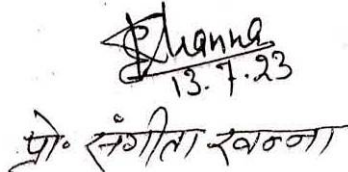 SKhanna
13.7.23
प्रो॰ संगीता खन्ना